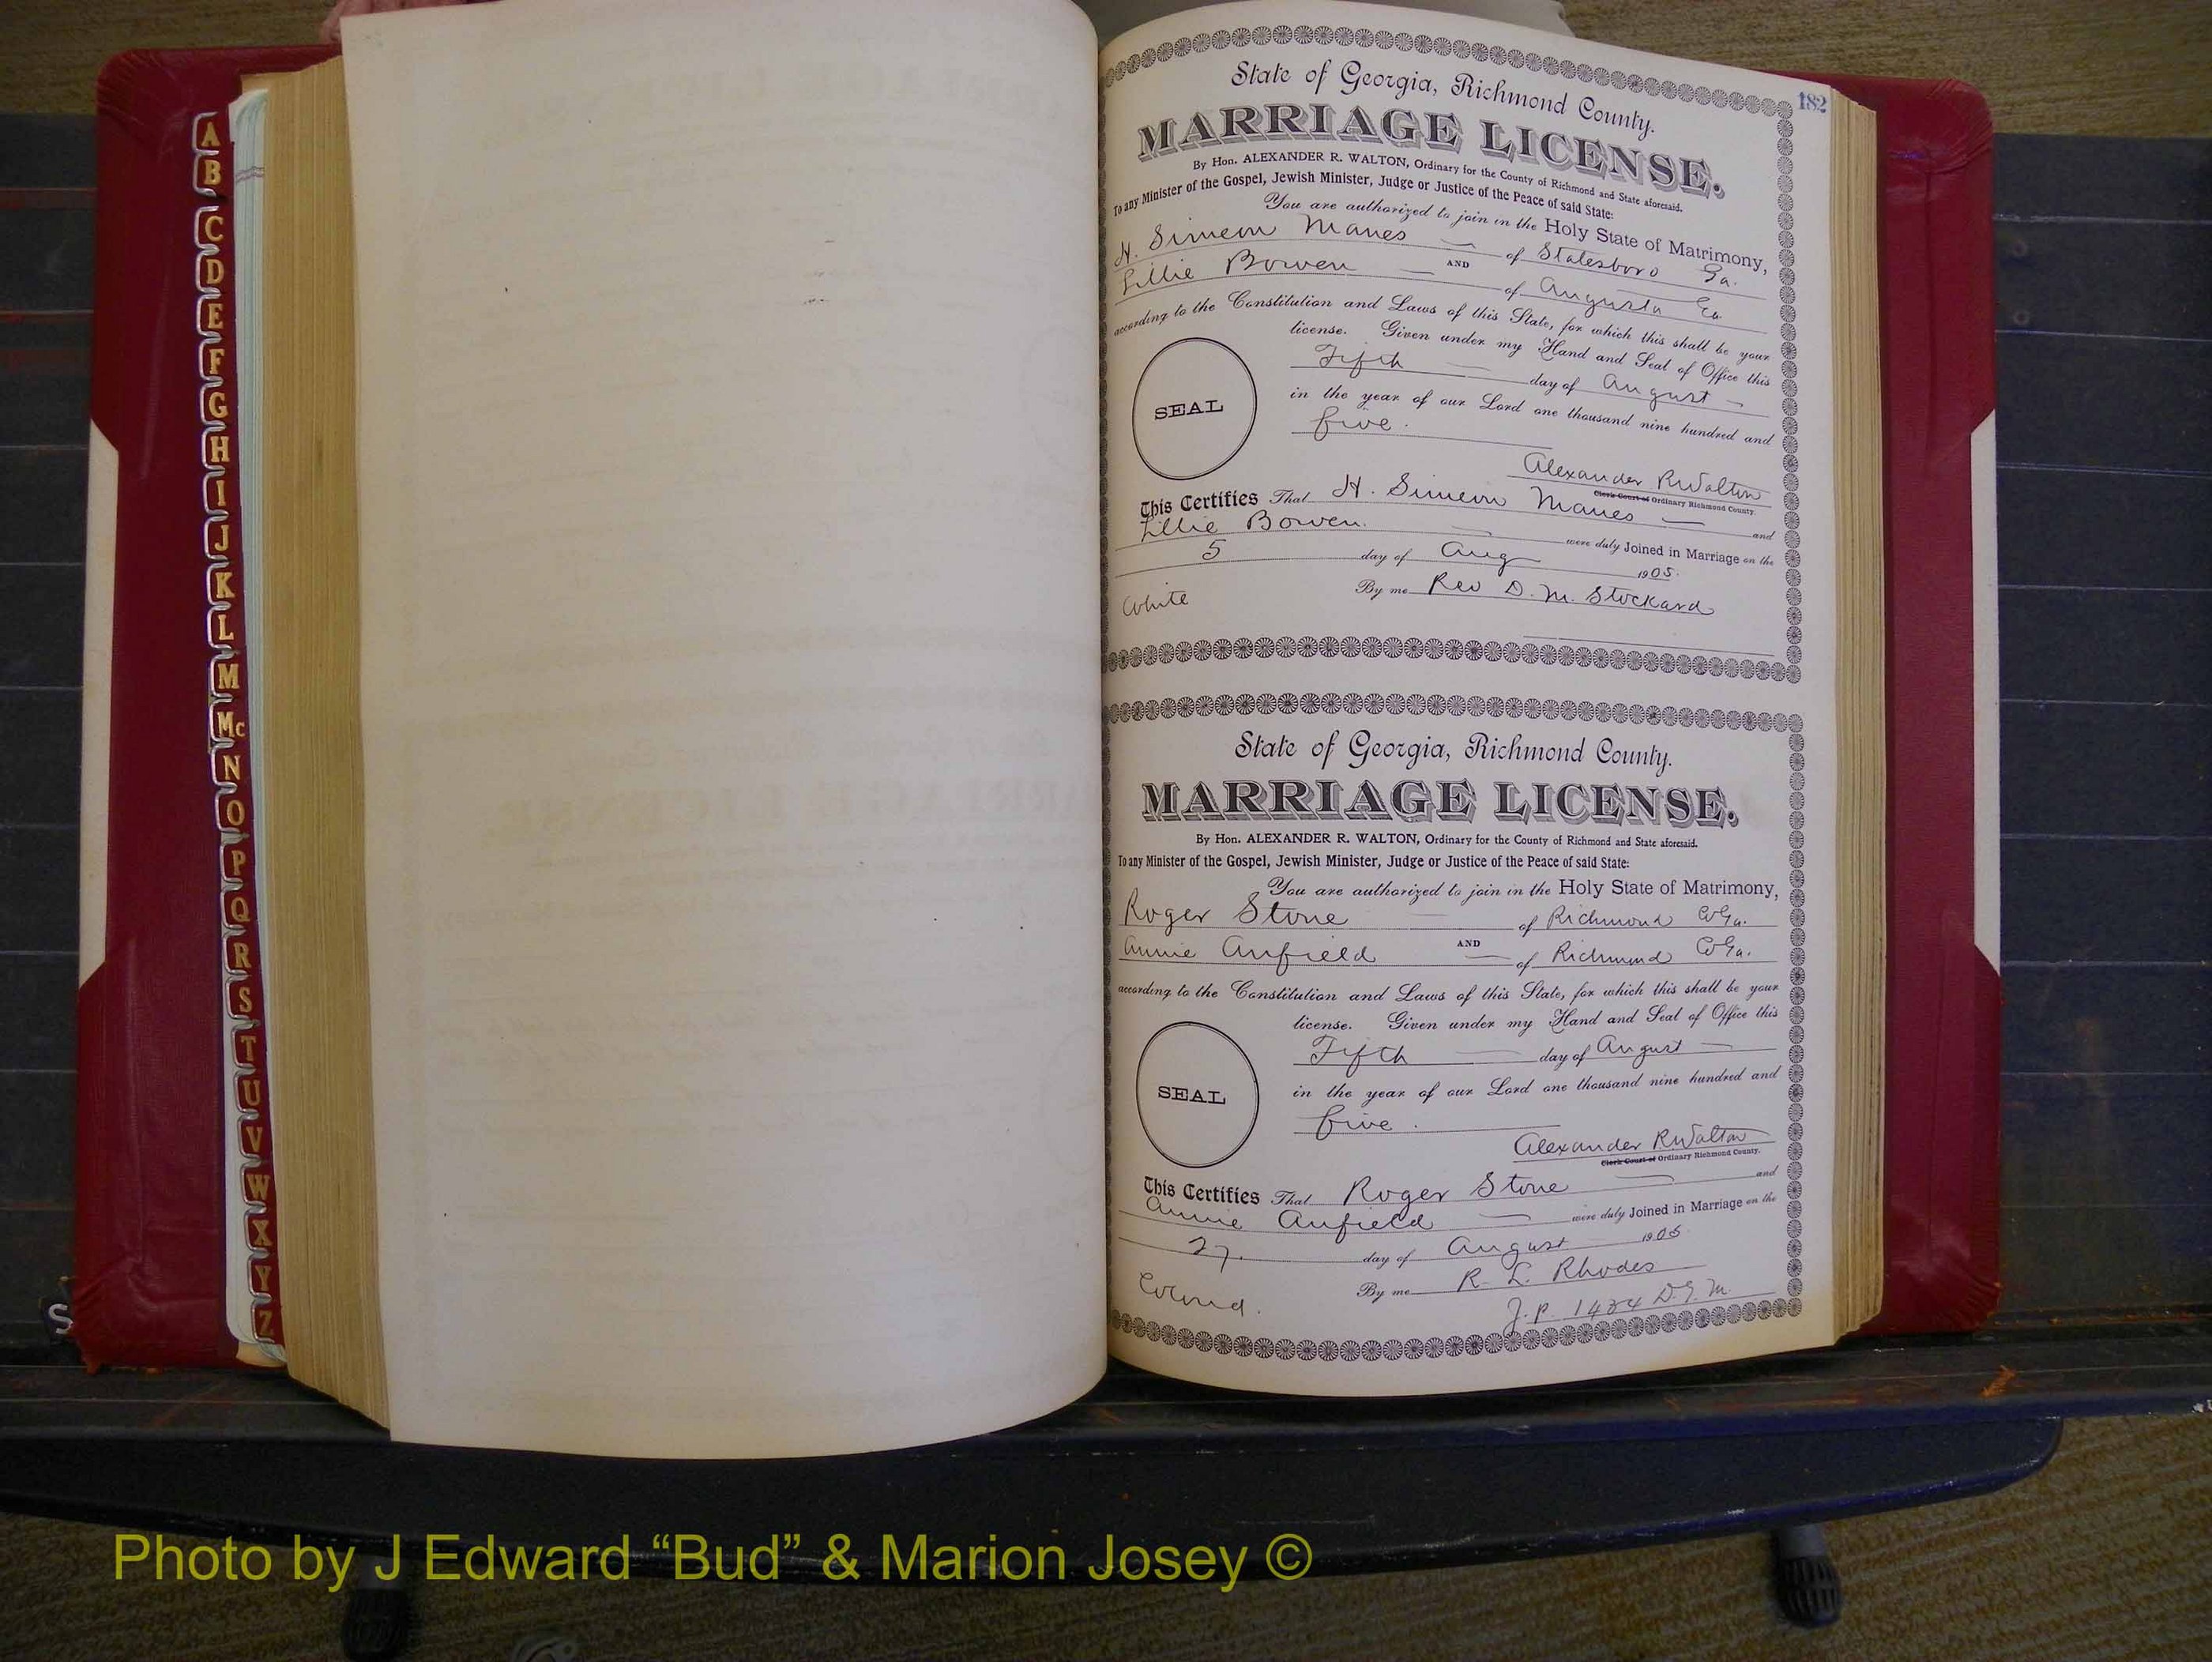 A
B
C
D
E
F
G
H
I
J
K
L
M
Mc
N
O
P
Q
R
S
T
U
V
W
X
Y
Z
S
182
State of Georgia, Richmond County.
MARRIAGE LICENSE.
By Hon. ALEXANDER R. WALTON, Ordinary for the County of Richmond and State aforesaid.
To any Minister of the Gospel, Jewish Minister, Judge or Justice of the Peace of said State:
You are authorized to join in the Holy State of Matrimony,
H. Simeon Manes of Statesboro Ga.
AND
Lillie Bowen of Augusta Ga
according to the Constitution and Laws of this State, for which this shall be your
license. Given under my Hand and Seal of Office this
Fifth day of August
in the year of our Lord one thousand nine hundred and
five.
SEAL
Alexander R Walton
Clerk Court of Ordinary Richmond County.
This Certifies That H. Simeon Manes and
Lillie Bowen. were duly Joined in Marriage on the
5 day of Aug 1905.
White By me Rev D. M. Stockard
State of Georgia, Richmond County.
MARRIAGE LICENSE.
By Hon. ALEXANDER R. WALTON, Ordinary for the County of Richmond and State aforesaid.
To any Minister of the Gospel, Jewish Minister, Judge or Justice of the Peace of said State:
You are authorized to join in the Holy State of Matrimony,
Roger Stone of Richmond Co Ga.
AND
Annie Anfield of Richmond Co Ga.
according to the Constitution and Laws of this State, for which this shall be your
license. Given under my Hand and Seal of Office this
Fifth day of August
in the year of our Lord one thousand nine hundred and
five.
SEAL
Alexander R Walton
Clerk Court of Ordinary Richmond County.
This Certifies That Roger Stone and
Annie Anfield were duly Joined in Marriage on the
27. day of August 1905
Colored. By me R. L. Rhodes
J. P. 1434 D. G. M.
Photo by J Edward “Bud” & Marion Josey ©